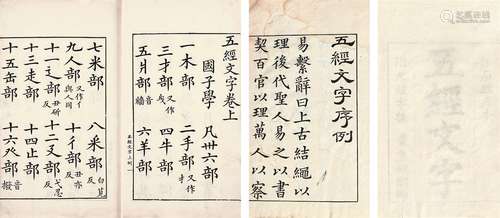 五經文字序例
易繫辭曰上古結繩以
理後代聖人易之以書
契百官以理萬人以察
五經文字卷上
國子學 凡卅六部
一木部 二手部 又作扌
三才部 又作 四牛部
五爿部 音牆 六羊部
五經文字上
七米部 八釆部 白莧反
九人部 又作亻與人同 十彳部 丑亦反
十一辶部 丑 反 十二廴部 弋 反
十三走部 十四止部
十五缶部 十六癶部 音撥